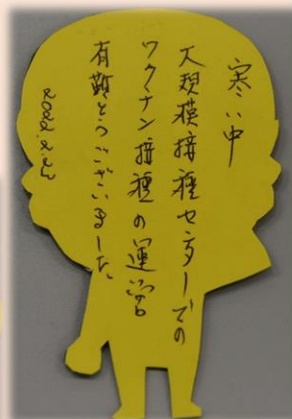 寒い中
大規模接種センターでの
ワクチン接種の運営
有難とうございました。